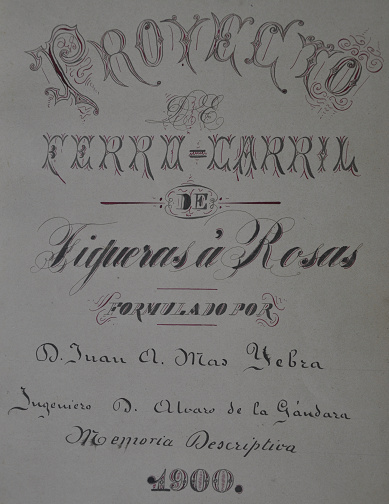 PROYECTO
DE
FERRO-CARRIL
DE
Figueras á Rosas
FORMULADO POR
D. Juan A. Mas Yebra
Ingeniero D. Alvaro de la Gándara
Memoria Descriptiva
1900.